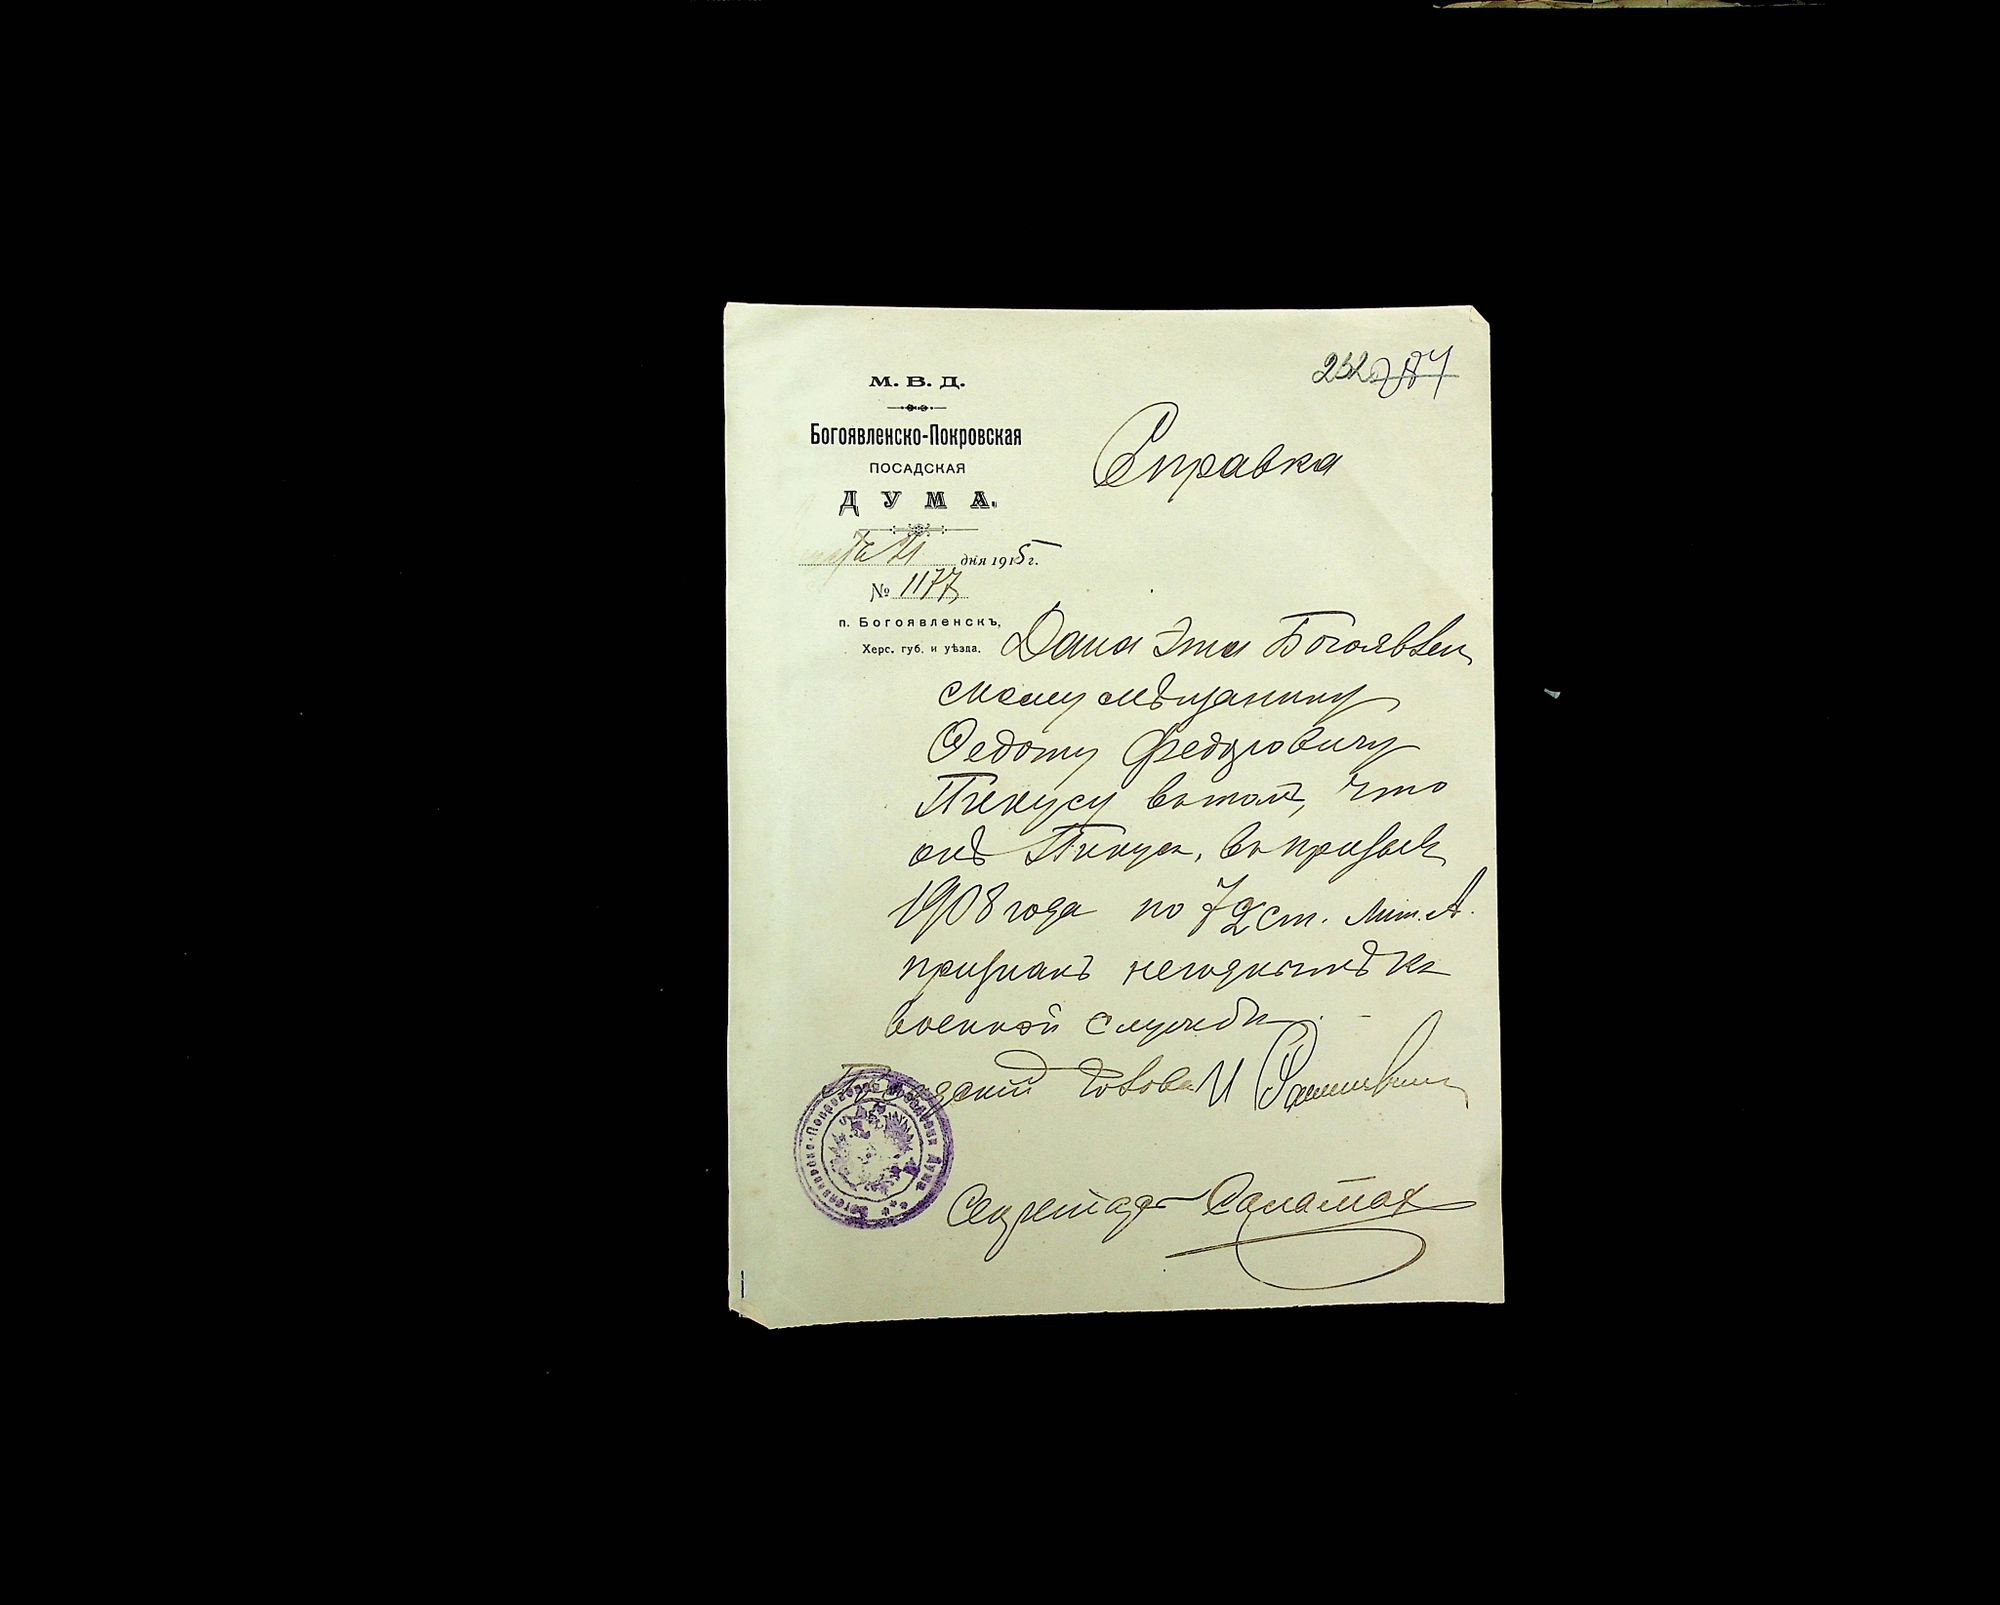 232
М. В. Д.
Богоявленско-Покровская
ПОСАДСКАЯ
ДУМА.
21 дня 1915 г.
№ 1177
п. Богоявленскъ,
Херс. губ. и уѣзда.
Справка
Дана Эта Богоявлен
скому мѣщанину
Федоту Федоровичу
Пикусу въ томъ, что
онъ Пикусъ, въ призывъ
1908 года по 72 ст. лит. А.
признанъ негоднымъ къ
военной службѣ.
Посадскій Голова И
Секретарь Саламах
Богоявленско-Покровской Посадской Думы